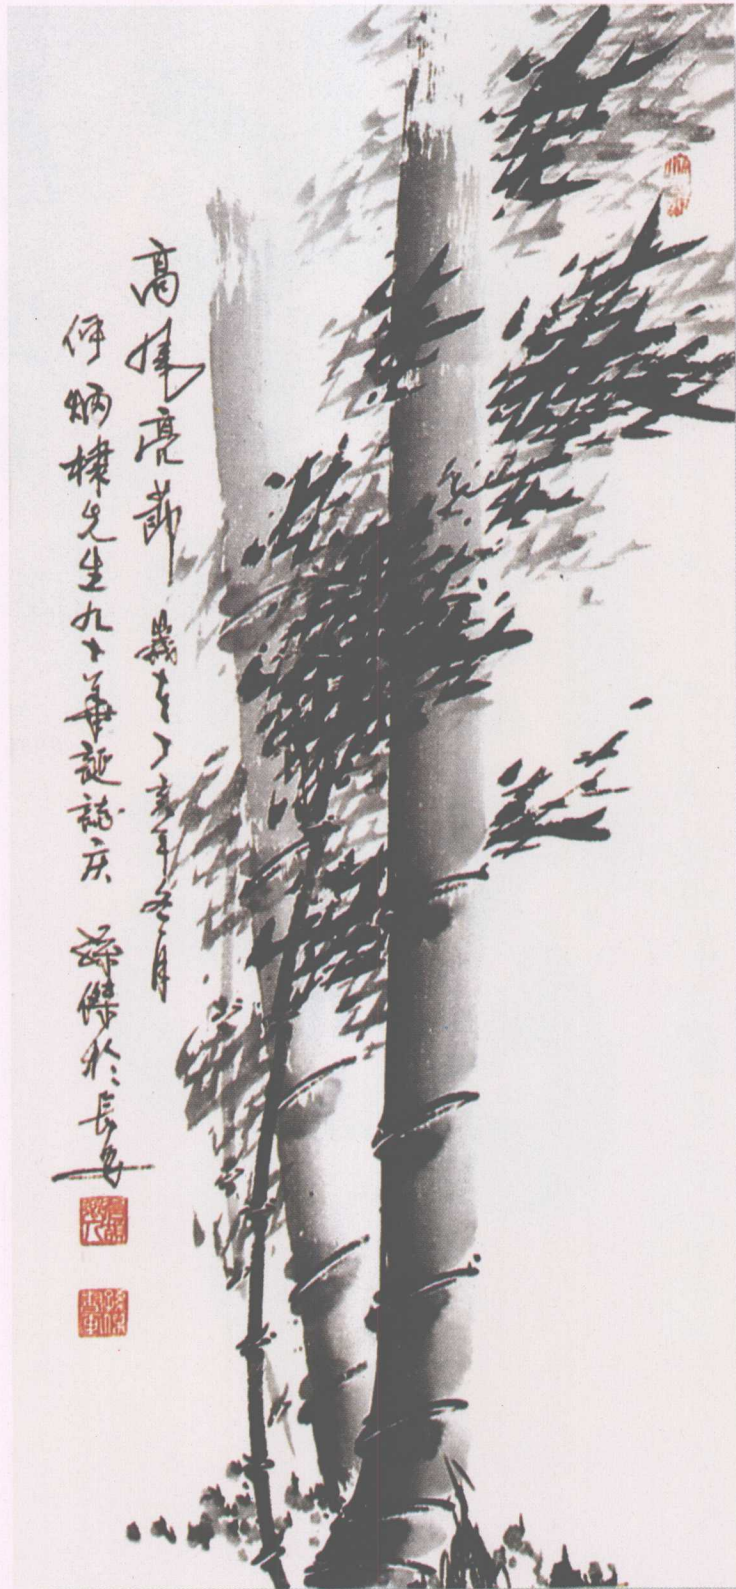 高風亮節 歲在丁亥年冬月
何炳棣先生九十華誕誌庆 孫傑於長安